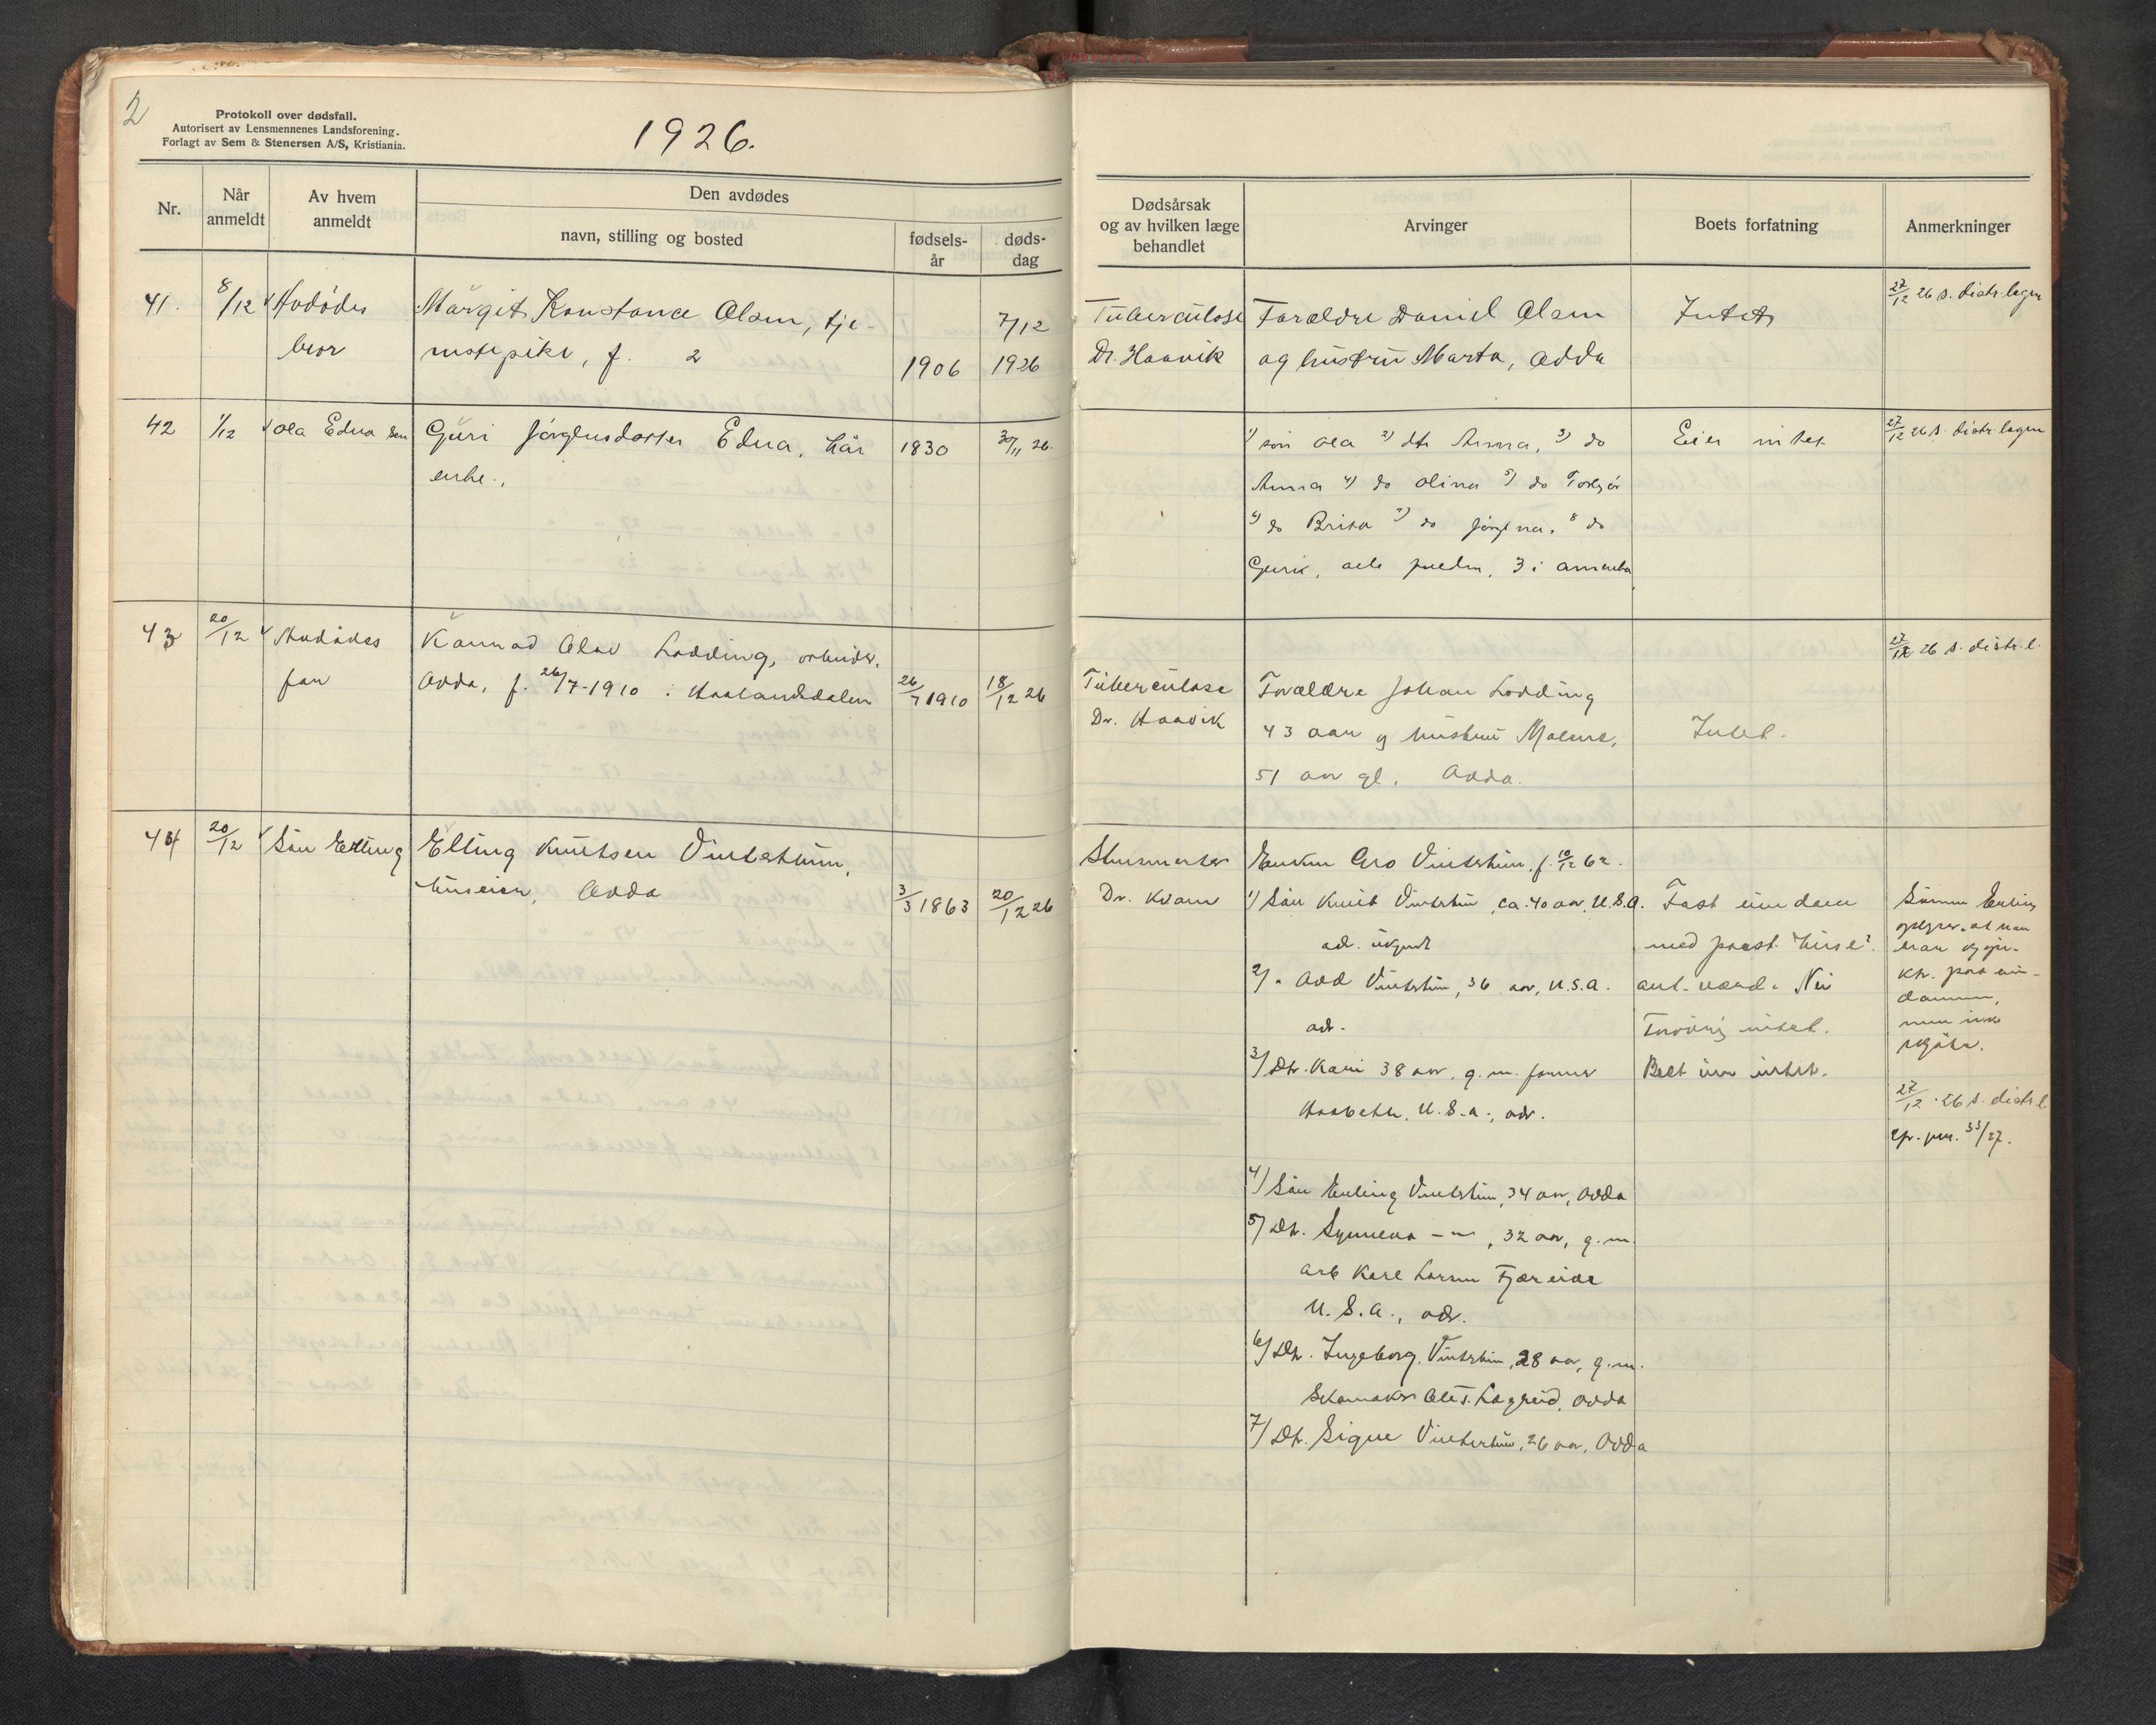 2
Protokoll over dødsfall.
Autorisert av Lensmennenes Landsforening.
Forlagt av Sem & Stenersen A/S, Kristiania.
1926.
Nr.
Når
anmeldt
Av hvem
anmeldt
Den avdødes
navn, stilling og bosted
fødsels-
år
døds-
dag
Dødsårsak
og av hvilken læge
behandlet
Arvinger
Boets forfatning
Anmerkninger
41.
8/12
Avdødes
bror
Margit Konstance Olsen, tje-
nestepike, f.
1906
7/12
1926
Tuberculose
Dr. Haavik
Forældre Daniel Olsen
og hustru Marta, Odda
Intet
27/12 26 s. distr. legen
42
1/12
Ola Edna
Guri Jørgensdatter Edna, kår
enke.,
1830
30/11 26.
1) søn Ola 2) dtr Anna, 3) do
Anna 4) do Olina 5) do Torbjør
6) do Brita 7) do 8 do
Guri, alle 3 i amerika
Eier intet
27/12 26 s. distr. legen
43
20/12
Avdødes
far
Konrad Olav Lodding, arbeider,
Odda, f. 26/7-1910 i Haalandsdalen
26/7 1910
18/12 26
Tuberculose
Dr. Haavik
Forældre Johan Lodding
43 aar og hustru Malene,
51 aar gl. Odda.
Intet.
27/12 26 s. distr. l.
44
20/12
Søn Erling
Elling Knutsen Vintertun,
huseier, Odda
3/3 1863
20/12 26
Dr. Kvam
Enken Gro Vintertun, f. 10/12 62.
1) Søn Knut Vintertun, ca. 40 aar, U.S.A.
adr. ukjent
2) " Odd Vintertun, 36 aar, U.S.A.
adr.
3) Dtr. Kari 38 aar, g. m.
U.S.A., adr.
4) Søn Erling Vintertun, 34 aar, Odda
5) Dtr. Synneva - " - , 32 aar, g. m.
arb Karl Larsen Fjæreide
U.S.A., adr.
6) Dtr. Ingeborg Vintertun, 28 aar, g. m.
Skomaker Ole T. Lægreid, Odda
7) Dtr. Signe Vintertun, 26 aar, Odda
Fast eiendom
med paast. huse?
ant. værd. Nei
Forøvrig intet.
Intet.
Sønnen Erling
opgir at han
har
kr. paa eien-
dommen,
men ikke
27/12 26 s. distr. l.
33/27.